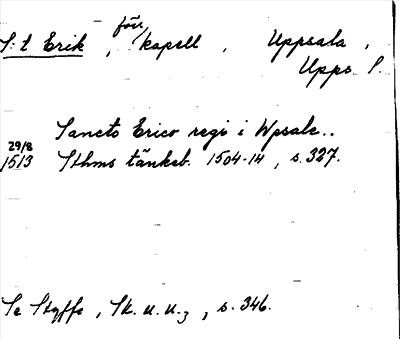 S:t Erik, förs. kapell, Uppsala,
Upps. S.
Sancto Erico regi i Wpsale..
29/8
1513 Sthms tänkeb. 1504-14, s. 327.
Se Styffe, Sk. u. u.3, s. 346.